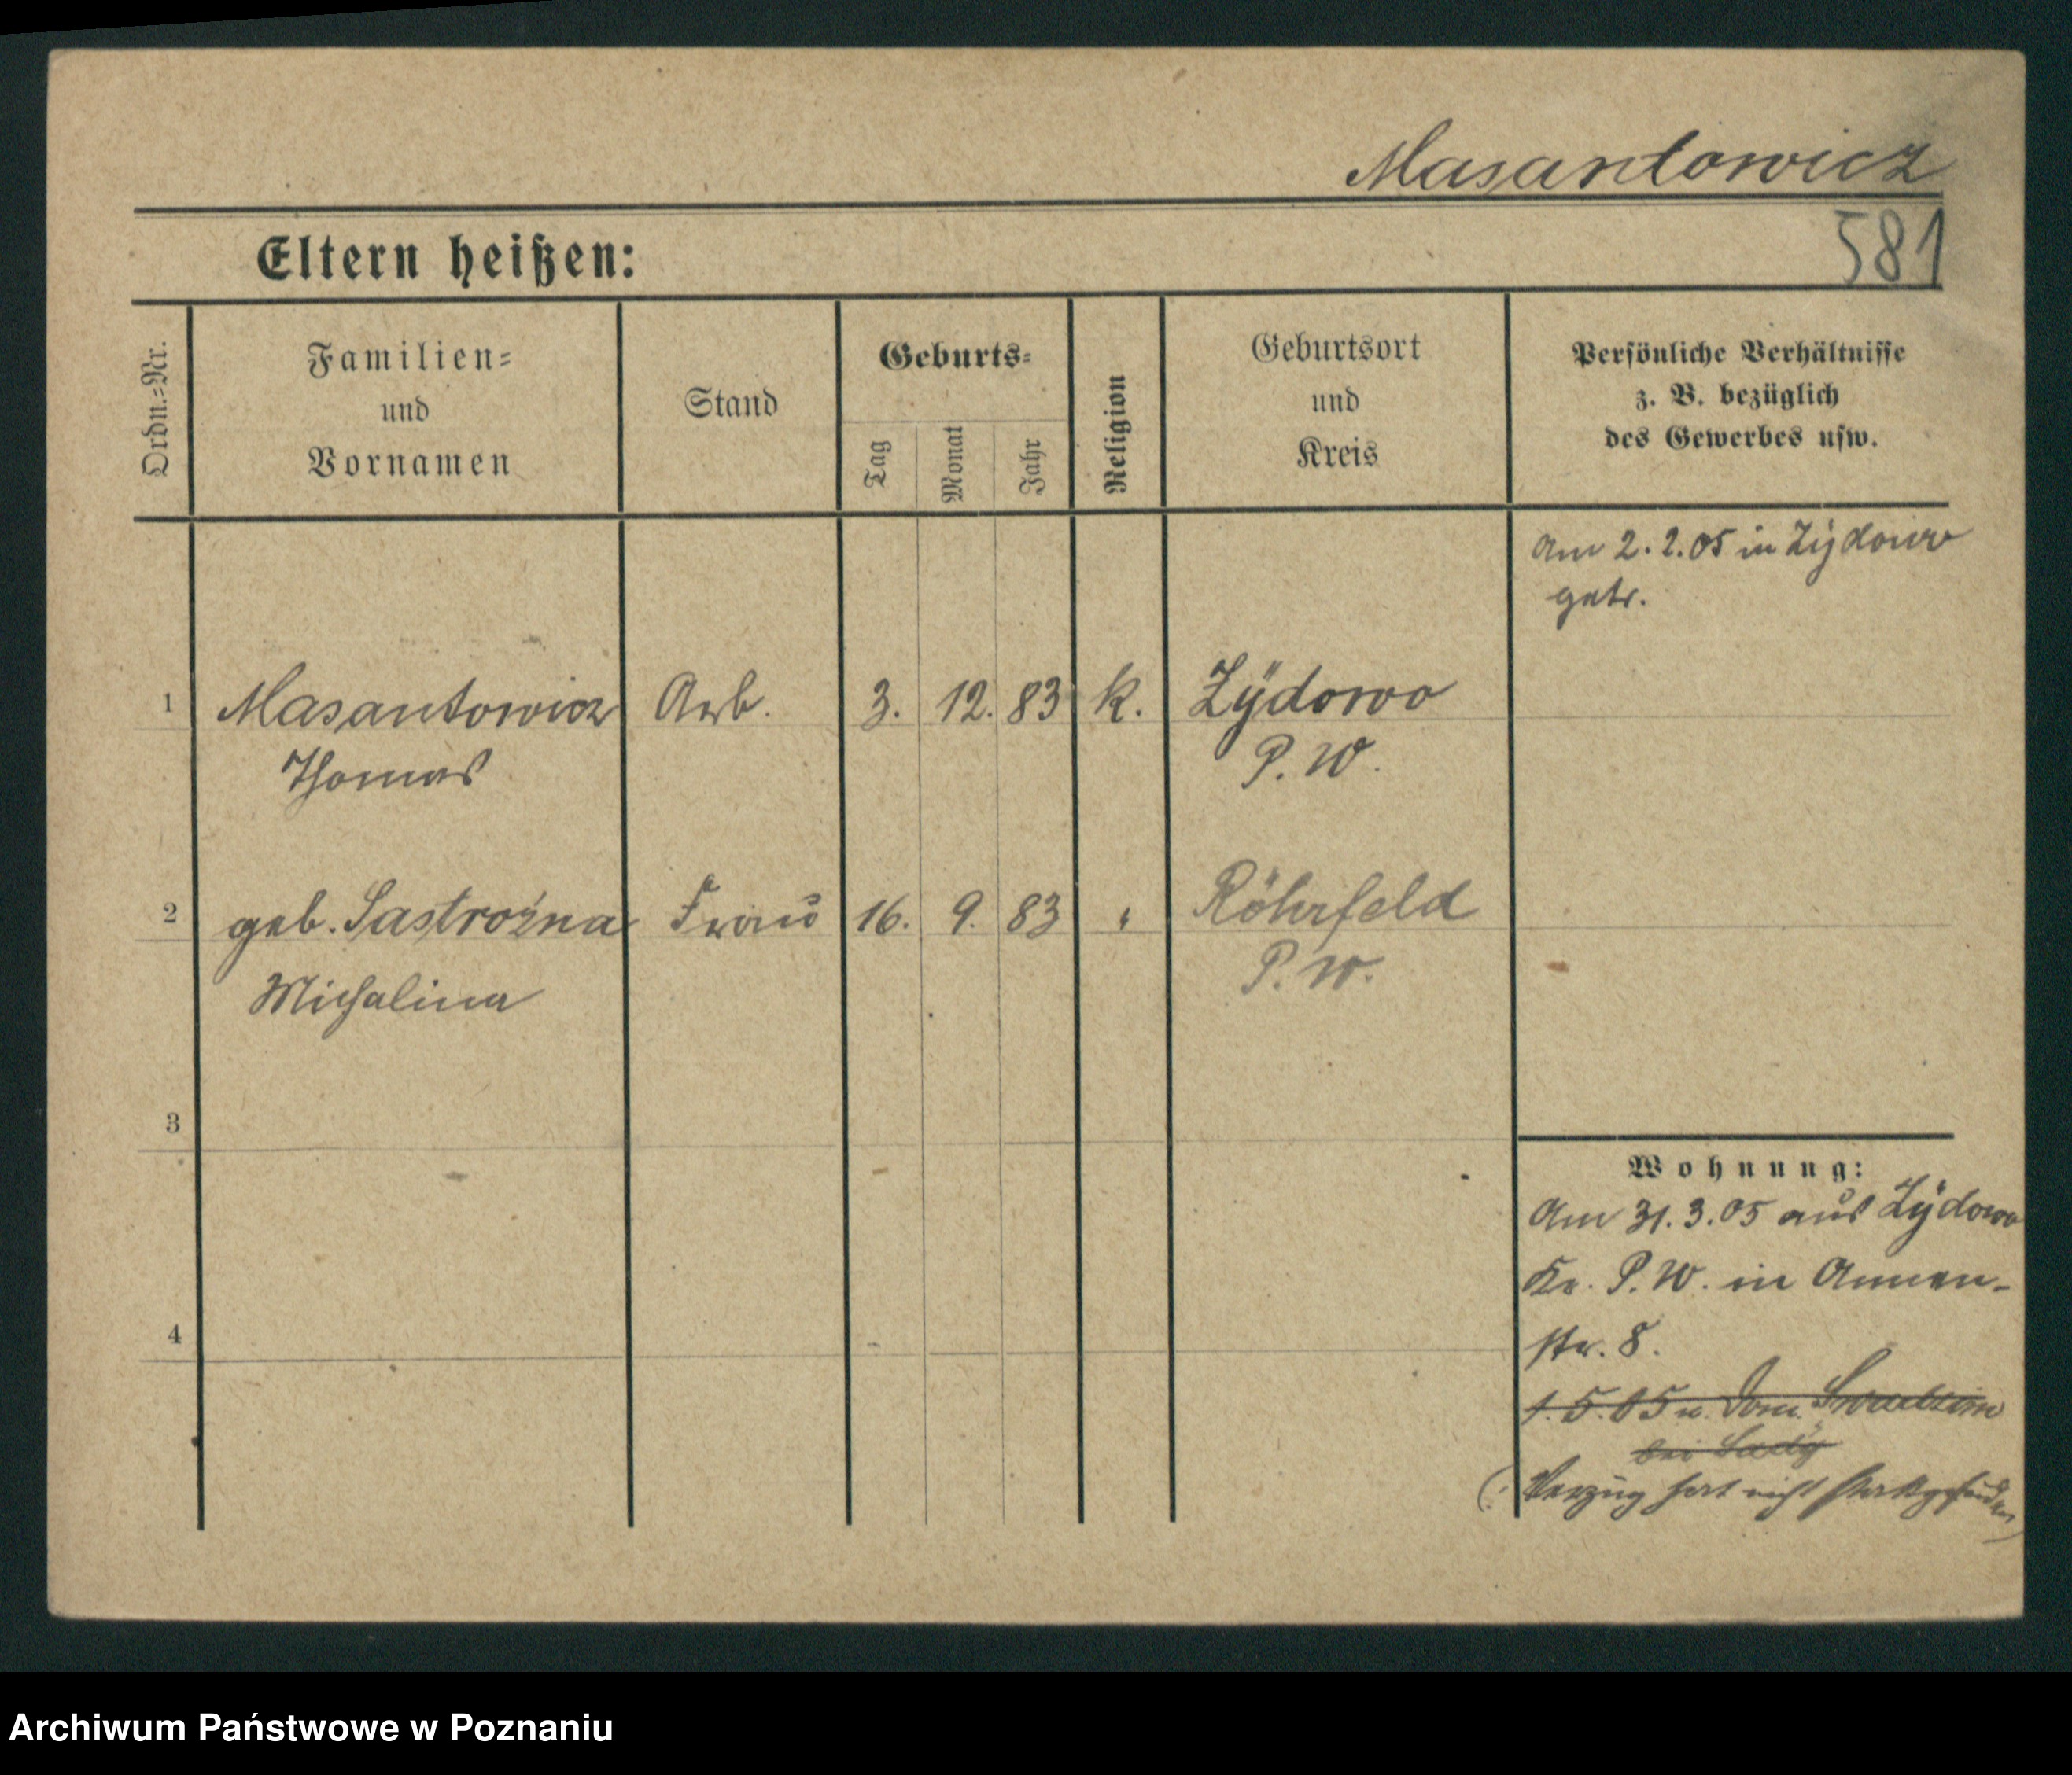 Masantowicz
Eltern heißen:
581
Ordn.=Nr.
Familien=
und
Vornamen
Stand
Geburts=
Tag
Monat
Jahr
Religion
Geburtsort
und
Kreis
Persönliche Verhältnisse
z. B. bezüglich
des Gewerbes usw.
Am 2.2.05 in Zÿdowo
getr.
1 Masantowicz Arb. 3. 12. 83 k. Zÿdowo
Thomas P. W.
2 geb. Sastrożna Frau 16. 9. 83 " Röhrfeld
Michalina P. W.
3
4
Wohnung:
Am 31.3.05 aus Zÿdowo
Kr. P. W. in Annen-
str. 8.
1.5.05 n. Dom.
bei
(: Verzug hat nicht stattgefunden
Archiwum Państwowe w Poznaniu